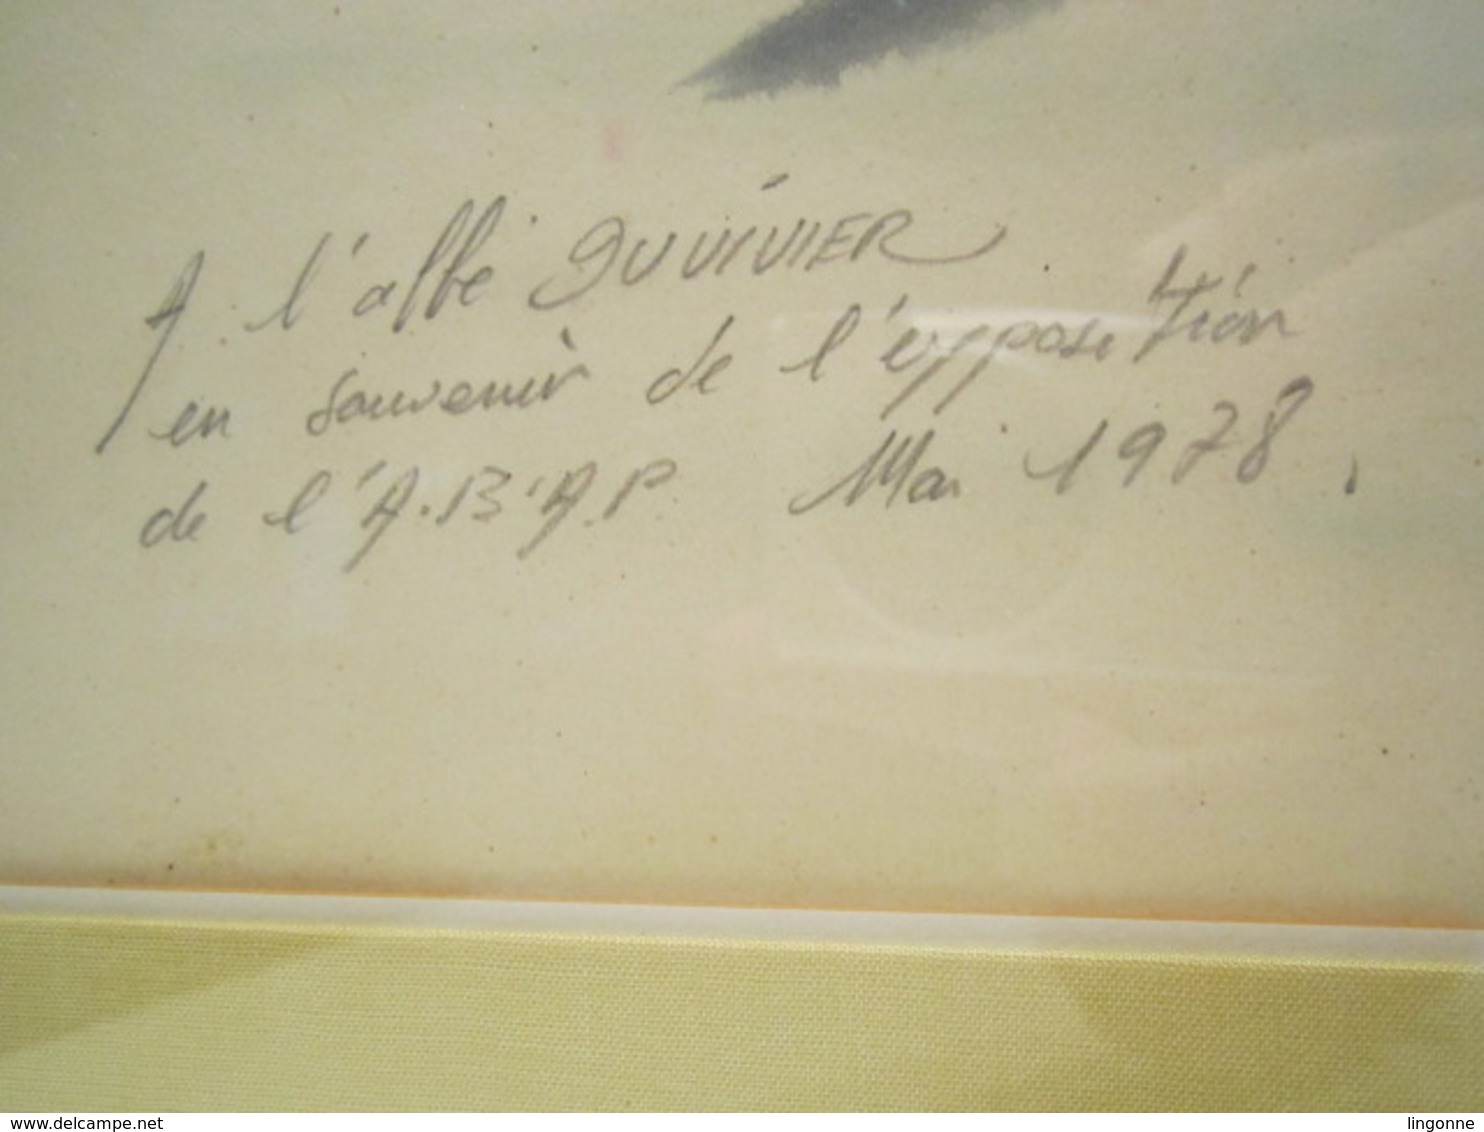 A l'abbé DUVIVIER
en souvenir de l'exposition
de l'A.B.A.P. Mai 1978.
www.delcampe.net
lingonne